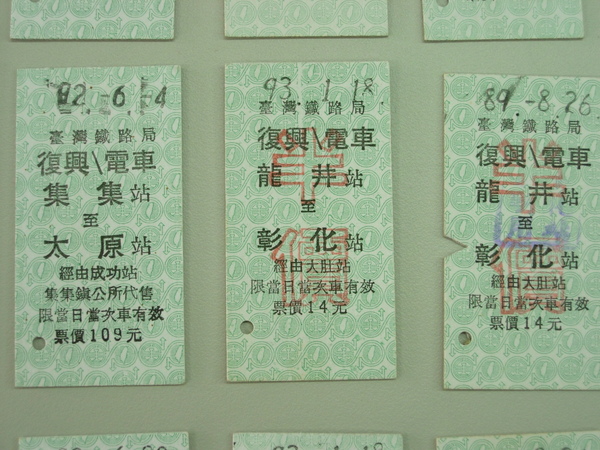 92.-6.-4
臺灣鐵路局
復興\電車
集集站
至
太原站
經由成功站
集集鎮公所代售
限當日當次車有效
票價109元
93. 1. 18
臺灣鐵路局
復興\電車
龍井站
至
彰化站
經由大肚站
限當日當次車有效
票價14元
半價
89.-8.26
臺灣鐵路局
復興\電車
龍井站
至
彰化站
經由大肚站
限當日當次車有效
票價14元
半價